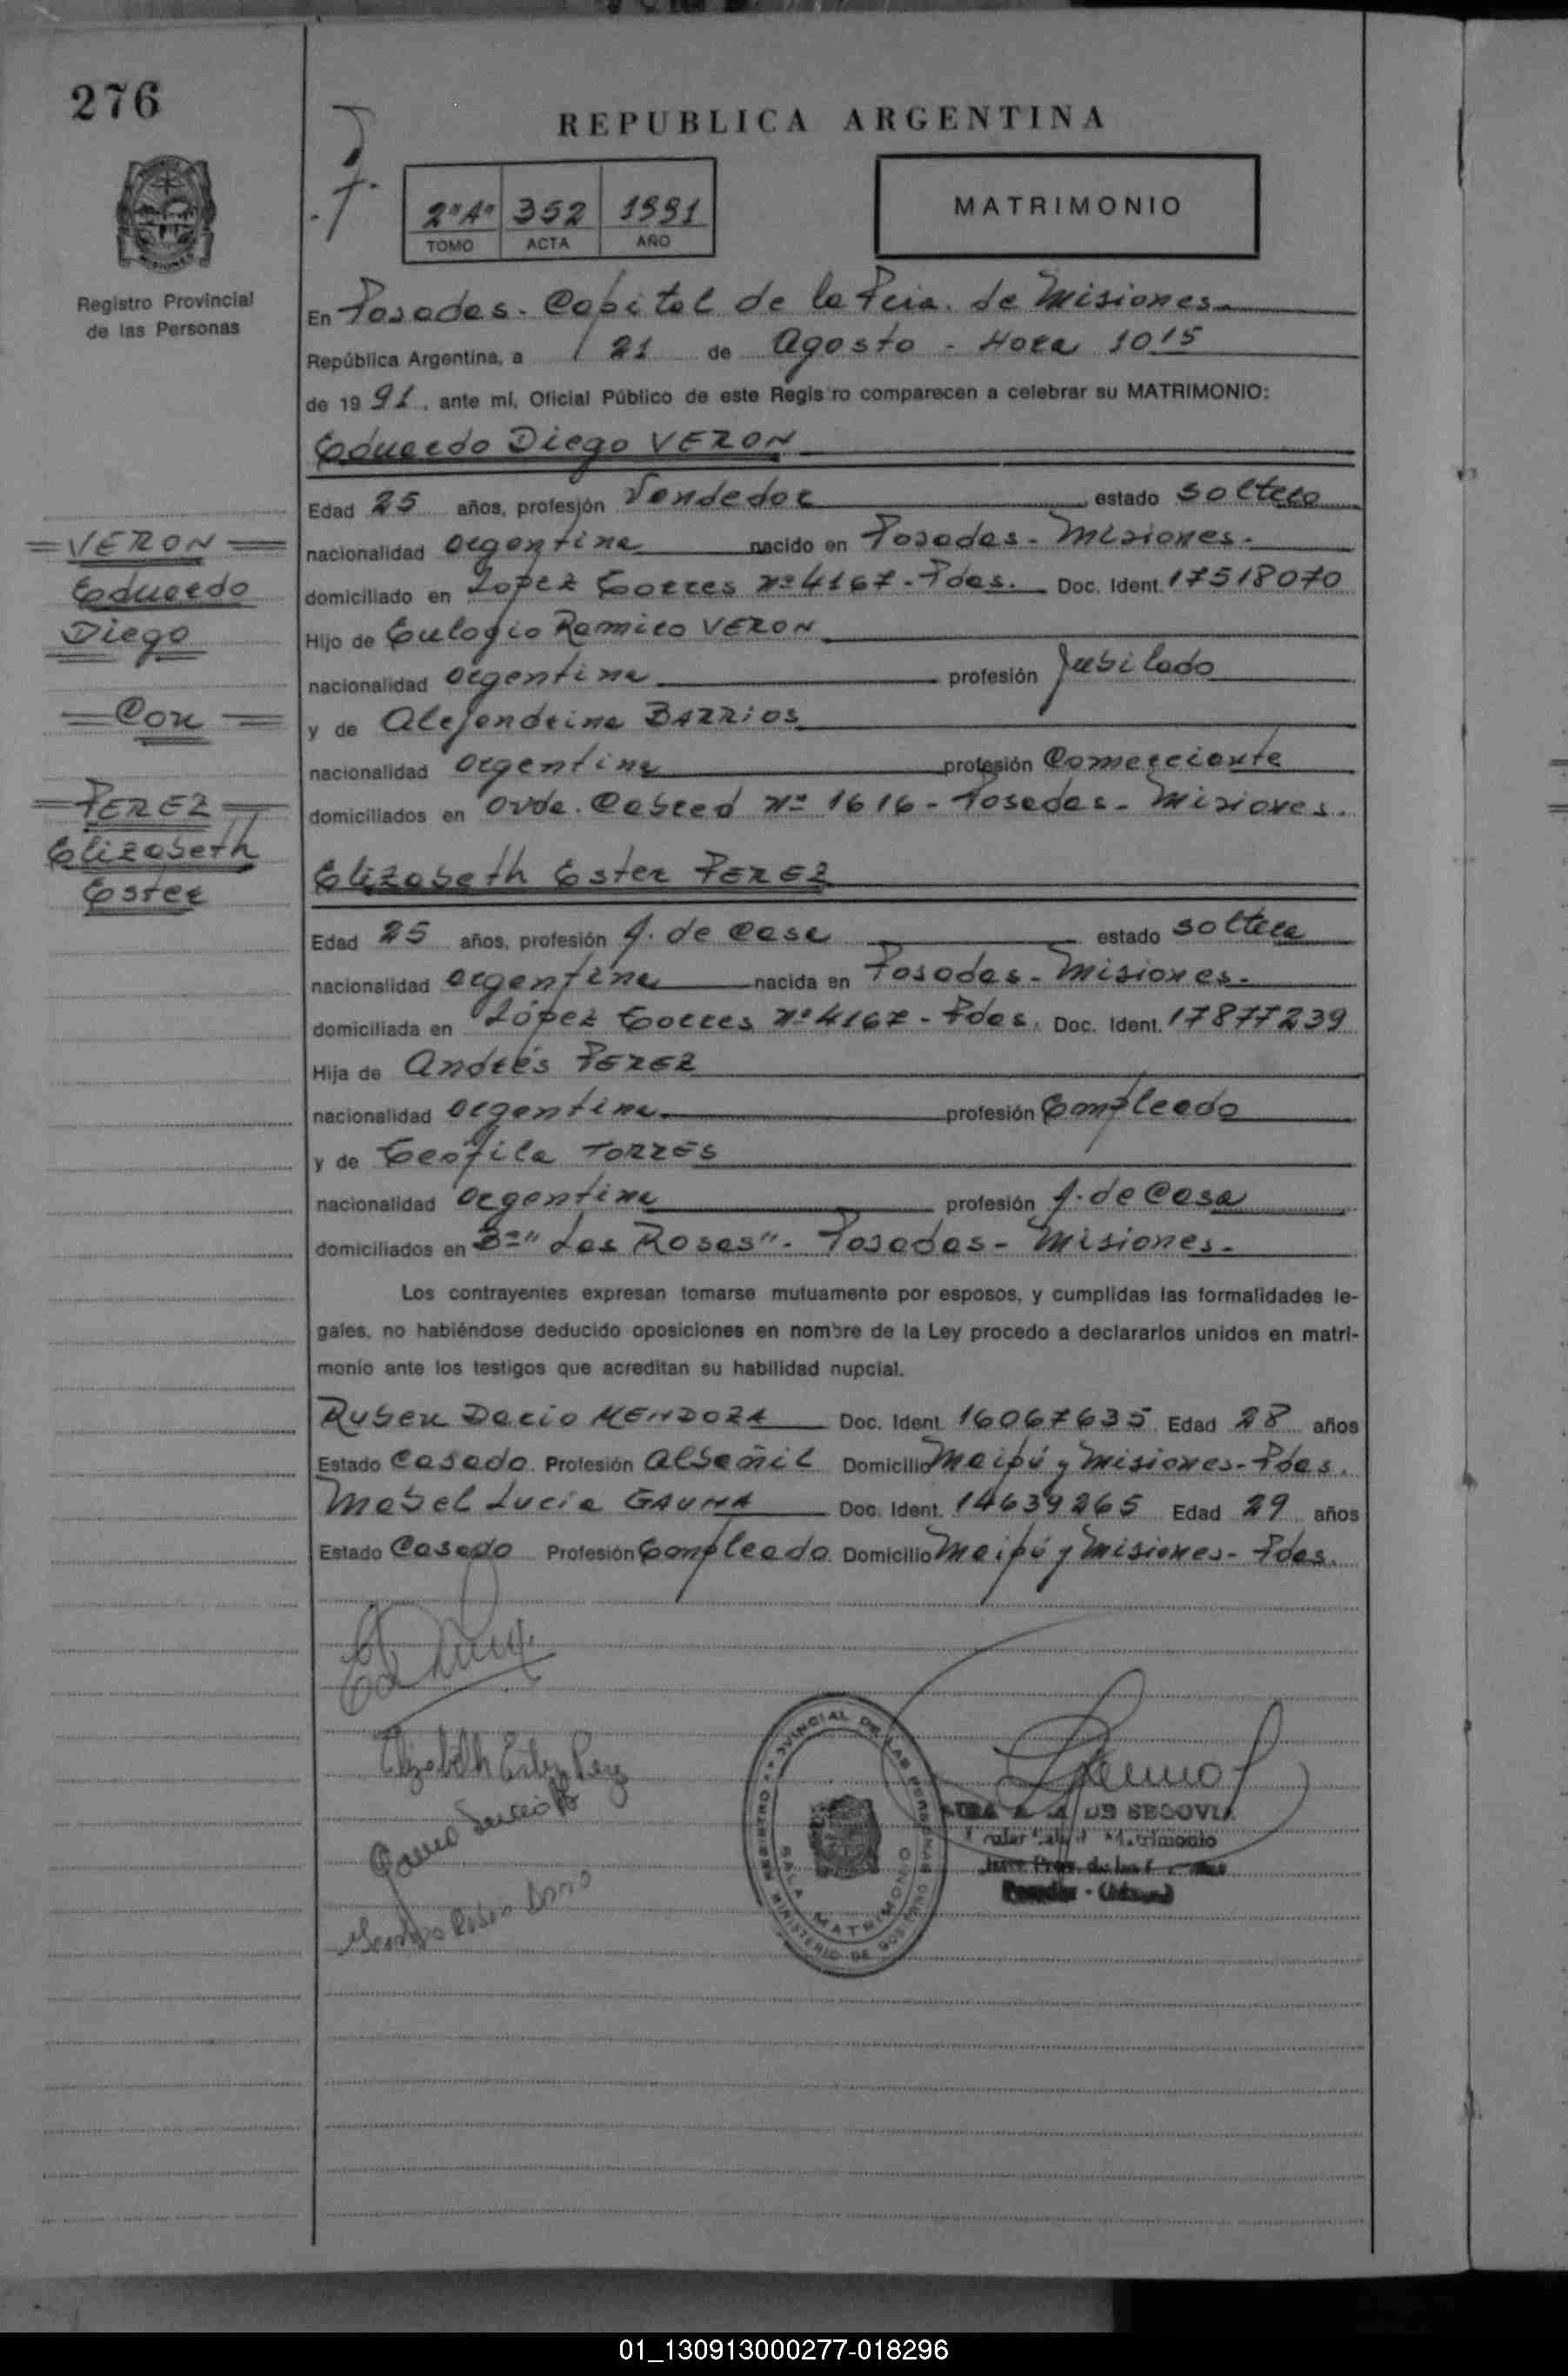 276
REPUBLICA ARGENTINA
2º Aº 352 1991
TOMO ACTA AÑO
MATRIMONIO
Registro Provincial
de las Personas
En Posadas. Capital de la Pcia. de Misiones
República Argentina, a 21 de Agosto - Hora 1015
de 1991, ante mi, Oficial Público de este Registro comparecen a celebrar su MATRIMONIO:
Eduardo Diego VERON
Edad 25 años, profesión Vendedor estado soltero
nacionalidad argentina nacido en Posadas - Misiones.
domiciliado en Lopez Torres Nº 4167 - Pdas. Doc. Ident. 17518070
Hijo de Eulogio Ramiro VERON
nacionalidad argentina profesión Jubilado
y de Alejandrina BARRIOS
nacionalidad argentina profesión Comerciante
domiciliados en Avda. Cabred Nº 1616 - Posadas - Misiones.
VERON
Eduardo
Diego
Con
PEREZ
Elizabeth
Ester
Elizabeth Ester PEREZ
Edad 25 años, profesión A. de Casa estado soltera
nacionalidad argentina nacida en Posadas - Misiones.
domiciliada en López Torres Nº 4167 - Pdas. Doc. Ident. 17877239
Hija de Andrés PEREZ
nacionalidad argentina profesión Empleado
y de Teófila TORRES
nacionalidad argentina profesión A. de Casa
domiciliados en Bº "Las Rosas". Posadas - Misiones.
Los contrayentes expresan tomarse mutuamente por esposos, y cumplidas las formalidades le-
gales, no habiéndose deducido oposiciones en nombre de la Ley procedo a declararlos unidos en matri-
monio ante los testigos que acreditan su habilidad nupcial.
Ruben Dario MENDOZA Doc. Ident. 16067635 Edad 28 años
Estado Casado Profesión Albañil Domicilio Maipú y Misiones - Pdas.
Mabel Lucia GAUNA Doc. Ident. 14639265 Edad 29 años
Estado Casado Profesión Empleada Domicilio Maipú y Misiones - Pdas.
Elizabeth Ester Perez
REGISTRO PROVINCIAL DE LAS PERSONAS
SALA MATRIMONIO
MINISTERIO DE GOBIERNO
DE SEGOVIA
Matrimonio
01_130913000277-018296